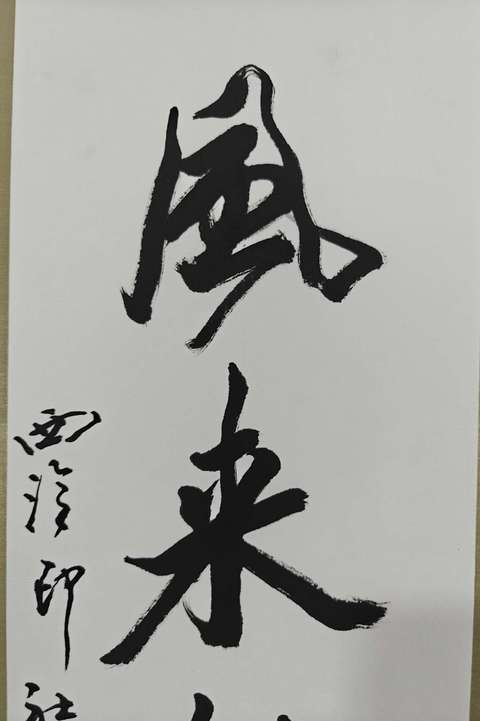 風来
西泠印社